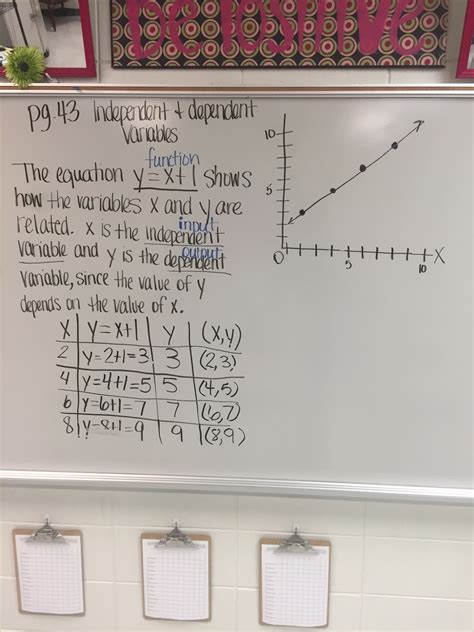 BE POSITIVE
pg.43 Independent + dependent
Variables
function
The equation y=x+1 shows
how the variables x and y are
related. x is the independent
input
variable and y is the dependent
output
variable, since the value of y
depends on the value of x.
X | y=x+1 | y | (x,y)
2 | y=2+1=3 | 3 | (2,3)
4 | y=4+1=5 | 5 | (4,5)
6 | y=6+1=7 | 7 | (6,7)
8 | y=8+1=9 | 9 | (8,9)
10
5
0
5
10
X